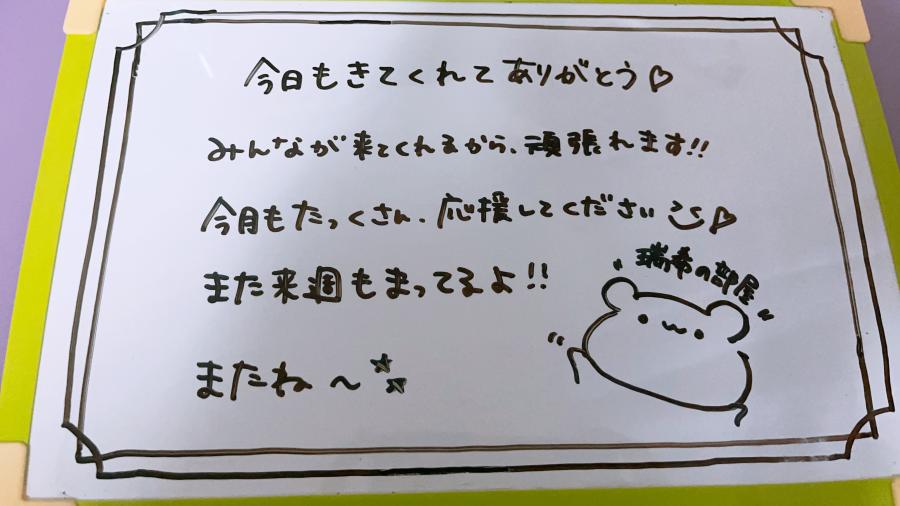 今日もきてくれてありがとう♡
みんなが来てくれるから、頑張れます!!
今月もたっくさん、応援してください♡
また来週もまってるよ!!
瑞希の部屋
またね〜